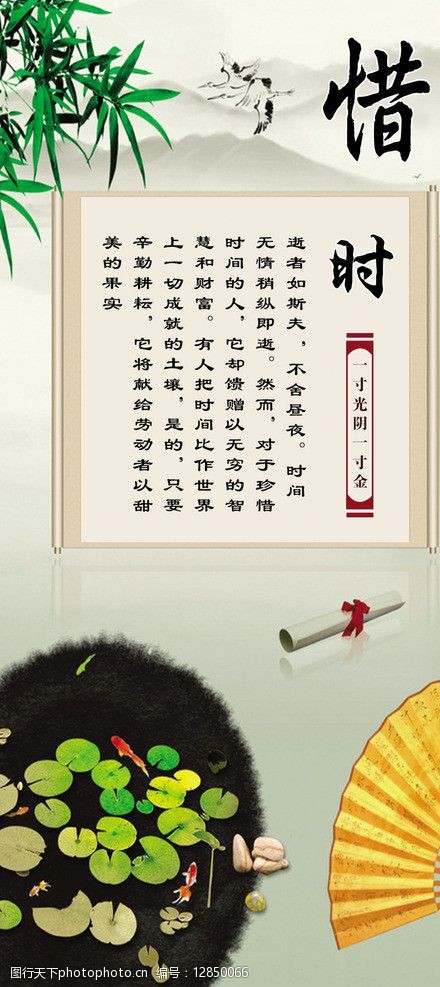 惜
时
一寸光阴一寸金
逝者如斯夫，不舍昼夜。时间
无情稍纵即逝。然而，对于珍惜
时间的人，它却馈赠以无穷的智
慧和财富。有人把时间比作世界
上一切成就的土壤，是的，只要
辛勤耕耘，它将献给劳动者以甜
美的果实
图行天下photophoto.cn 编号：12850066